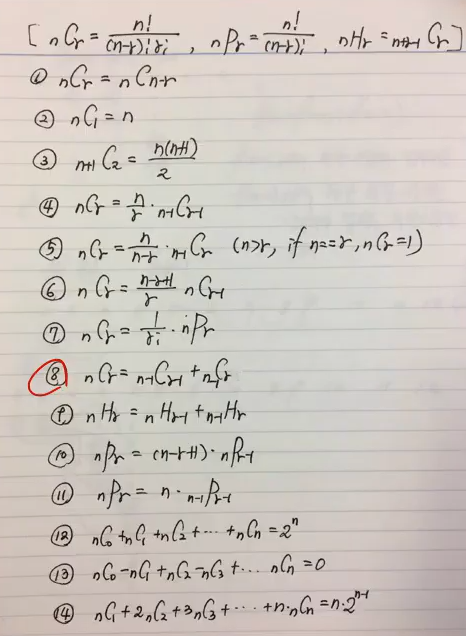 [ nCr = n!/(n-r)!r! , nPr = n!/(n-r)! , nHr = n+r-1Cr ]
① nCr = nCn-r
② nC1 = n
③ n+1C2 = n(n+1)/2
④ nCr = n/r · n-1Cr-1
⑤ nCr = n/n-r · n-1Cr (n>r, if n==r, nCr=1)
⑥ nCr = n-r+1/r nCr-1
⑦ nCr = 1/r! · nPr
⑧ nCr = n-1Cr-1 + n-1Cr
⑨ nHr = nHr-1 + n-1Hr
⑩ nPr = (n-r+1) · nPr-1
⑪ nPr = n · n-1Pr-1
⑫ nC0 + nC1 + nC2 + ··· + nCn = 2^n
⑬ nC0 - nC1 + nC2 - nC3 + ··· nCn = 0
⑭ nC1 + 2nC2 + 3nC3 + ··· + n·nCn = n·2^n-1